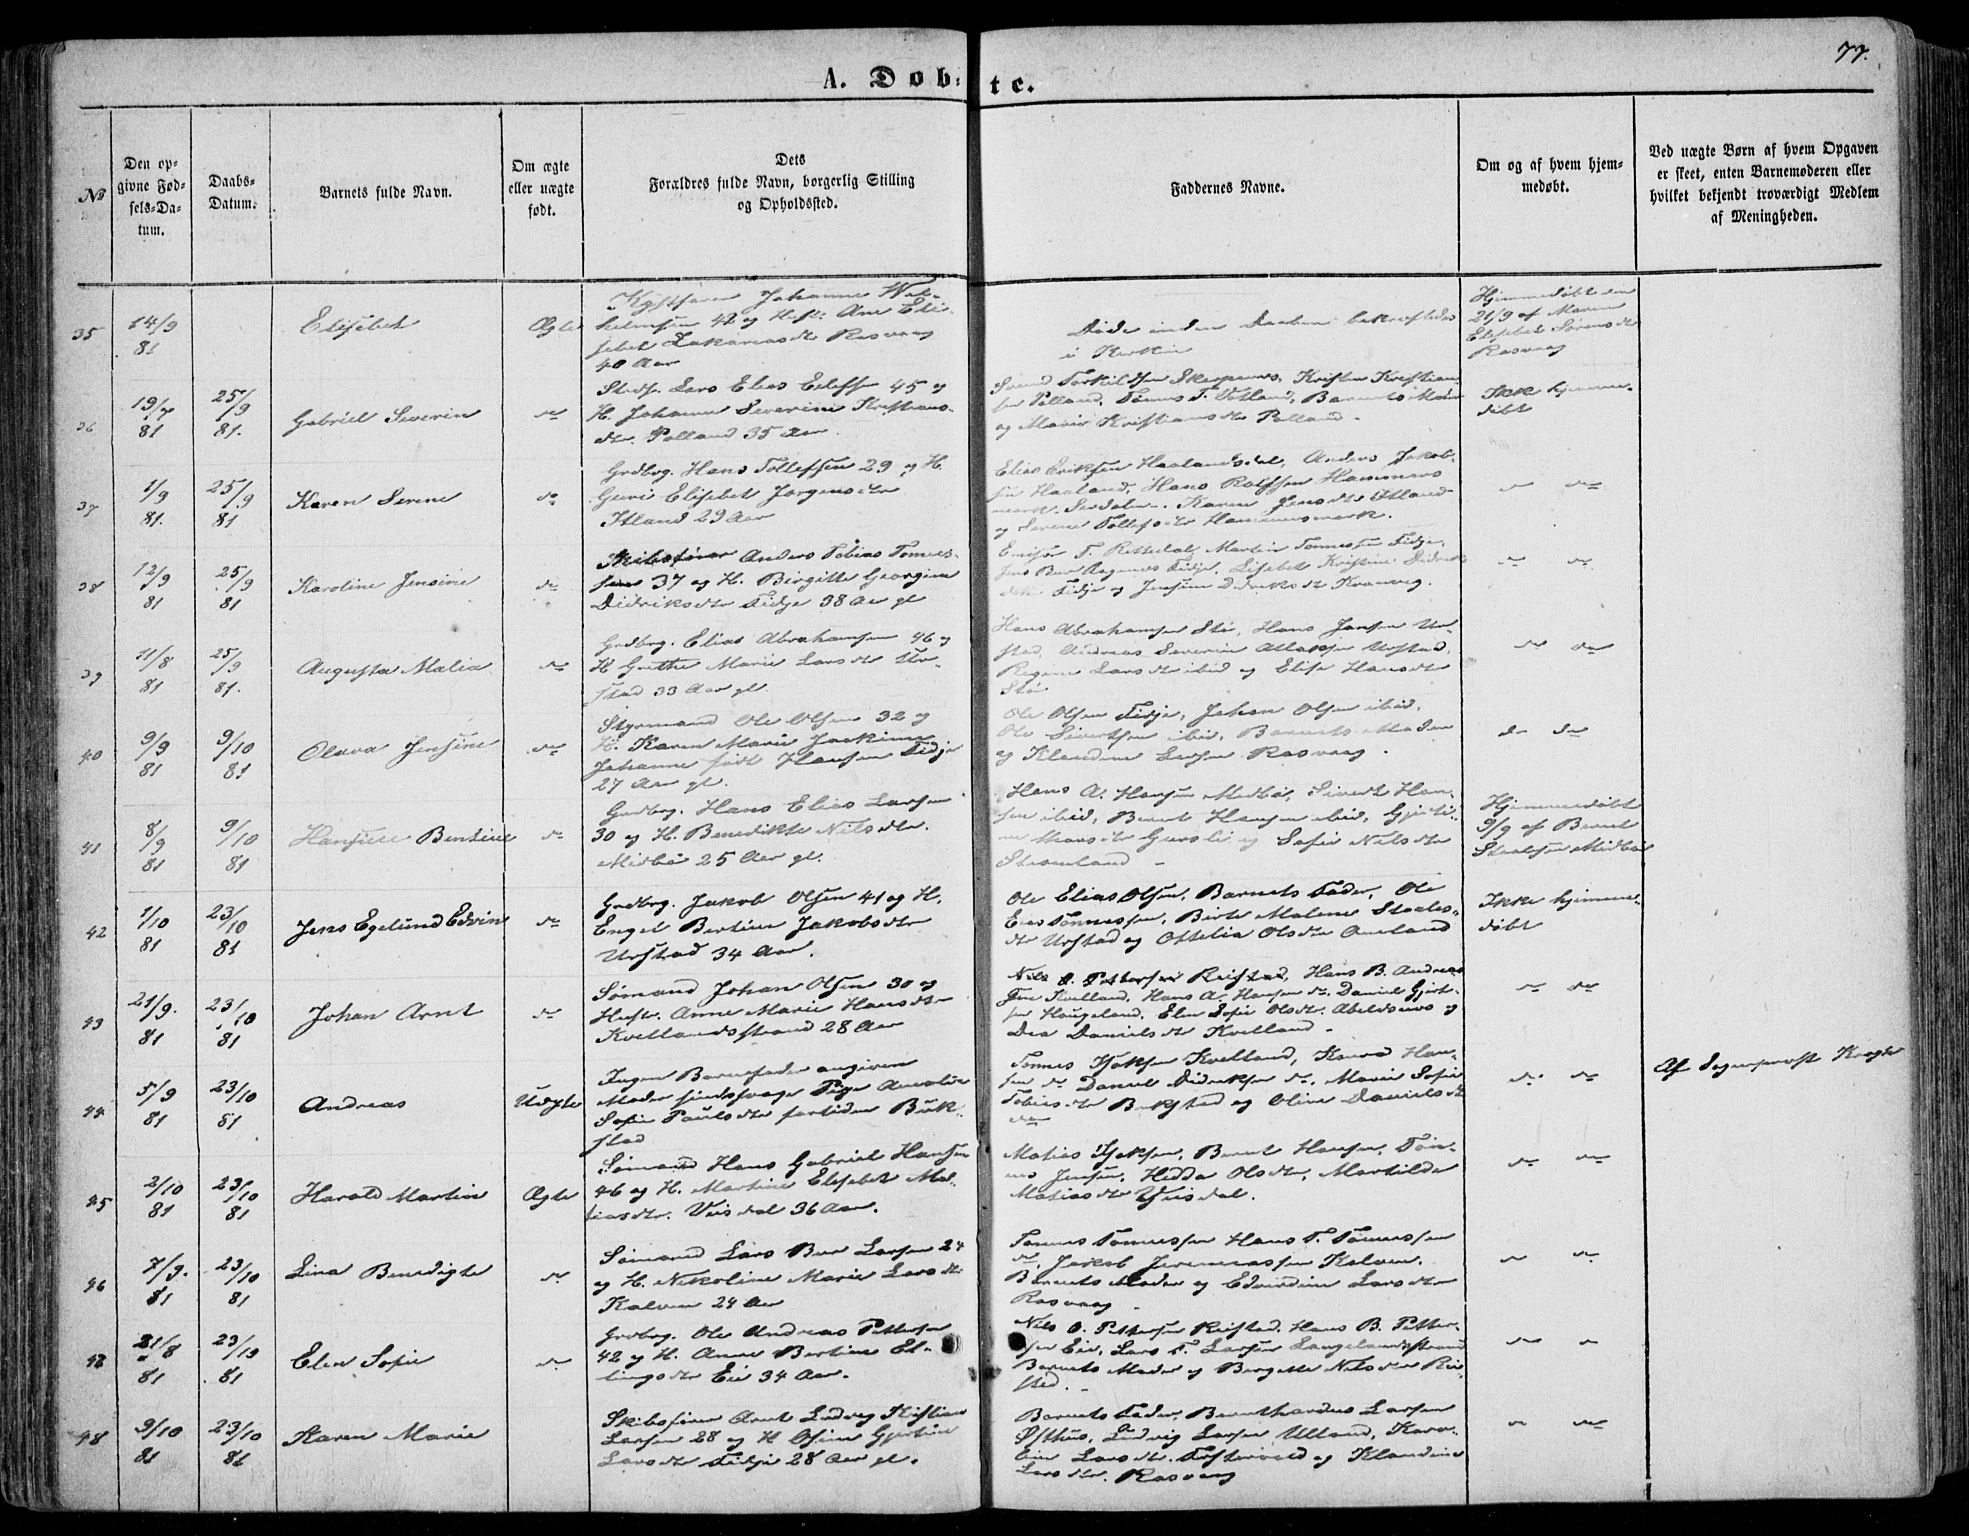 77.
A. Døb-te.
№
Den op-
givne Fød-
sels-Da-
tum.
Daabs-
Datum.
Barnets fulde Navn.
Om ægte
eller uægte
født.
Dets
Forældres fulde Navn, borgerlig Stilling
og Opholdssted.
Faddernes Navne.
Om og af hvem hjem-
medøbt.
Ved uægte Børn af hvem Opgaven
er skeet, enten Barnemoderen eller
hvilket bekjendt troværdigt Medlem
af Meningheden.
35
14/9
81
Elisebet
Ægte
Johannes
42 og Ane Eli-
sebet Zakariasdtr Rasvaag
40 Aar
Døde inden Daaben bekræftedes
i Kirken
Hjemmedøbt den
21/9 af Maren
Elisebet Sørensdtr
Rasvaag
36
19/7
81
25/9
81.
Gabriel Severin
do
Lars Elias 45 og
H. Johanne Severine Kristians-
dtr. Polland 35 Aar.
Kristen Kristian-
sen Polland, Barnets Moder
og Marie Kristiansdtr Polland.
Ikke hjemme-
døbt
37
1/9
81.
25/9
81
Karen Serene
do
Grdbrg. Hans Tollefsen 29 og H.
Guri Elisebet Jørgensdtr
Itland 29 Aar
Elias Eriksen Haalandsdal, Anders Jakob-
sen Haaland, Hans
Karen Jensdtr Itland
og Serene Tollefsdtr
do do
38
12/9
81
25/9
81
Karoline Jensine
do
Skibsfører Anders Tobias Tønnes-
sen 37 og H. Birgitte Georgine
Didriksdtr Fidje 38 Aar gl
Martin Tønnesen Fidje,
Fidje, Lisebet Kristine Didriks-
dtr Fidje og Jensine Didriksdtr
do do
39
11/8
81
25/9
81.
Augusta Malia
do
Grdbrg. Elias Abrahamsen 46 og
H Grethe Marie Larsdtr Ur-
stad 33 Aar gl.
Hans Abrahamsen Stø, Hans Jansen Ur-
stad, Andreas Severin Urstad,
Regine Larsdtr ibid og Elise Hansdtr
Stø
do do
40
9/9
81
9/10
81
Olava Jensine
do
Styrmand Ole Olsen 32 og
H. Karen Marie Joakime
Johanne født Hansen Fidje
27 Aar gl.
Ole Olsen Fidje, Johan Olsen ibid,
Ole Sivertsen ibid, Barnets Moder
og Klaudine Larsen Rasvaag.
do do
41
8/9
81
9/10
81
Hansine Bentine
do
Grdbrg. Hans Elias Larsen
30 og H. Benedikte Nilsdtr.
Midbøe 25 Aar gl.
Hans A. Hansen Midbø, Sivert Han-
sen ibid, Bernt Hansen ibid,
og Sofie Nilsdtr
Hjemmedøbt
9/9 af Bernt
Staalesen Midbø
42
1/10
81
23/10
81
Jens Egelund Edvin
do
Grdbrg. Jakob Olsen 41 og H.
Engel Bertine Jakobsdtr
Urstad 34 Aar.
Ole Elias Olsen, Barnets Fader, Ole
Elias Tønnessen, Birte Malene Staales-
dtr Urstad og Ottelia Olsdtr Aaneland
Ikke hjemme-
døbt
43
21/9.
81
23/10
81
Johan Arnt
do
Sømand Johan Olsen 30 og
Hustr. Anne Marie Hansdtr
Kvellandsstrand 28 Aar
Nils O. Pettersen Reistad, Hans B. Andrea-
sen Kvelland, Hans A. Hansen do. Daniel Gjert-
sen Haugeland, Elen Sofie Olsdtr. Abeldsnes og
Dea Danielsdtr Kvelland.
do do
44
5/9
81
23/10
81
Andreas
Uægte
Ingen Barnefader angiven
Moder sindssvage Pige Amalie
Sofie Paulsdtr fortiden Buk-
stad
Tønnes Kvelland, Konrad Han-
sen do Daniel Didriksen do. Marie Sofie
Tobiasdtr Bukstad og Oline Danielsdtr
do
do do
Af Sogneprest Kragh
45
2/10
81
23/10
81
Harald Martin
Ægte
Sømand Hans Gabriel Hansen
46 og H. Martine Elisebet Ma-
tiasdtr. Veisdal 36 Aar.
Matias Bernt Hansen, Tøn-
nes Jensen, Hedda Olsdtr, Martilde
Matiasdtr Veisdal.
do do
46
7/9.
81
23/10
81
Lina Benedigte
do
Sømand Lars Ber Larsen 24
og H. Nikoline Marie Larsdtr
Kalven 24 Aar
Tønnes Tønnessen Hans T. Tønnessen
do, Jakob Jeremiassen Kalven.
Barnets Moder og Edvardine Larsdtr
Rasvaag
do do
47
21/8
81
23/10
81
Elen Sofie
do
Grdbrg. Ole Andreas Pettersen
42 og H. Anne Bertine El-
lingsdtr Eie 34 Aar.
Nils O. Pettersen Reistad. Hans B. Petter-
sen Eie, Lars T. Larsen Laugelandsstrand
Barnets Moder og Bergitte Nilsdtr Rei-
stad.
do do
48
9/10
81
23/10
81
Karen Marie
do
Skibsfører Arnt Ludvig Kristian
Larsen 28 og H Osine Gjertine
Larsdtr Fidje 28 Aar gl.
Barnets Fader, Bernthardus Larsen
Østhus, Ludvig Larsen Ulland, Karo-
line Larsdtr. og Klaudine
Larsdtr. Rasvaag
do do